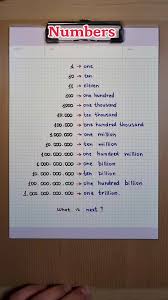 Numbers
1 → one
10 → ten
11 → eleven
100 → one hundred
1000 → one thousand
10.000 → ten thousand
100.000 → one hundred thousand
1.000.000 → one million
10.000.000 → ten million
100.000.000 → one hundred million
1.000.000.000 → one billion
10.000.000.000 → ten billion
100.000.000.000 → one hundred billion
1.000.000.000.000 → one trillion.
What is next?